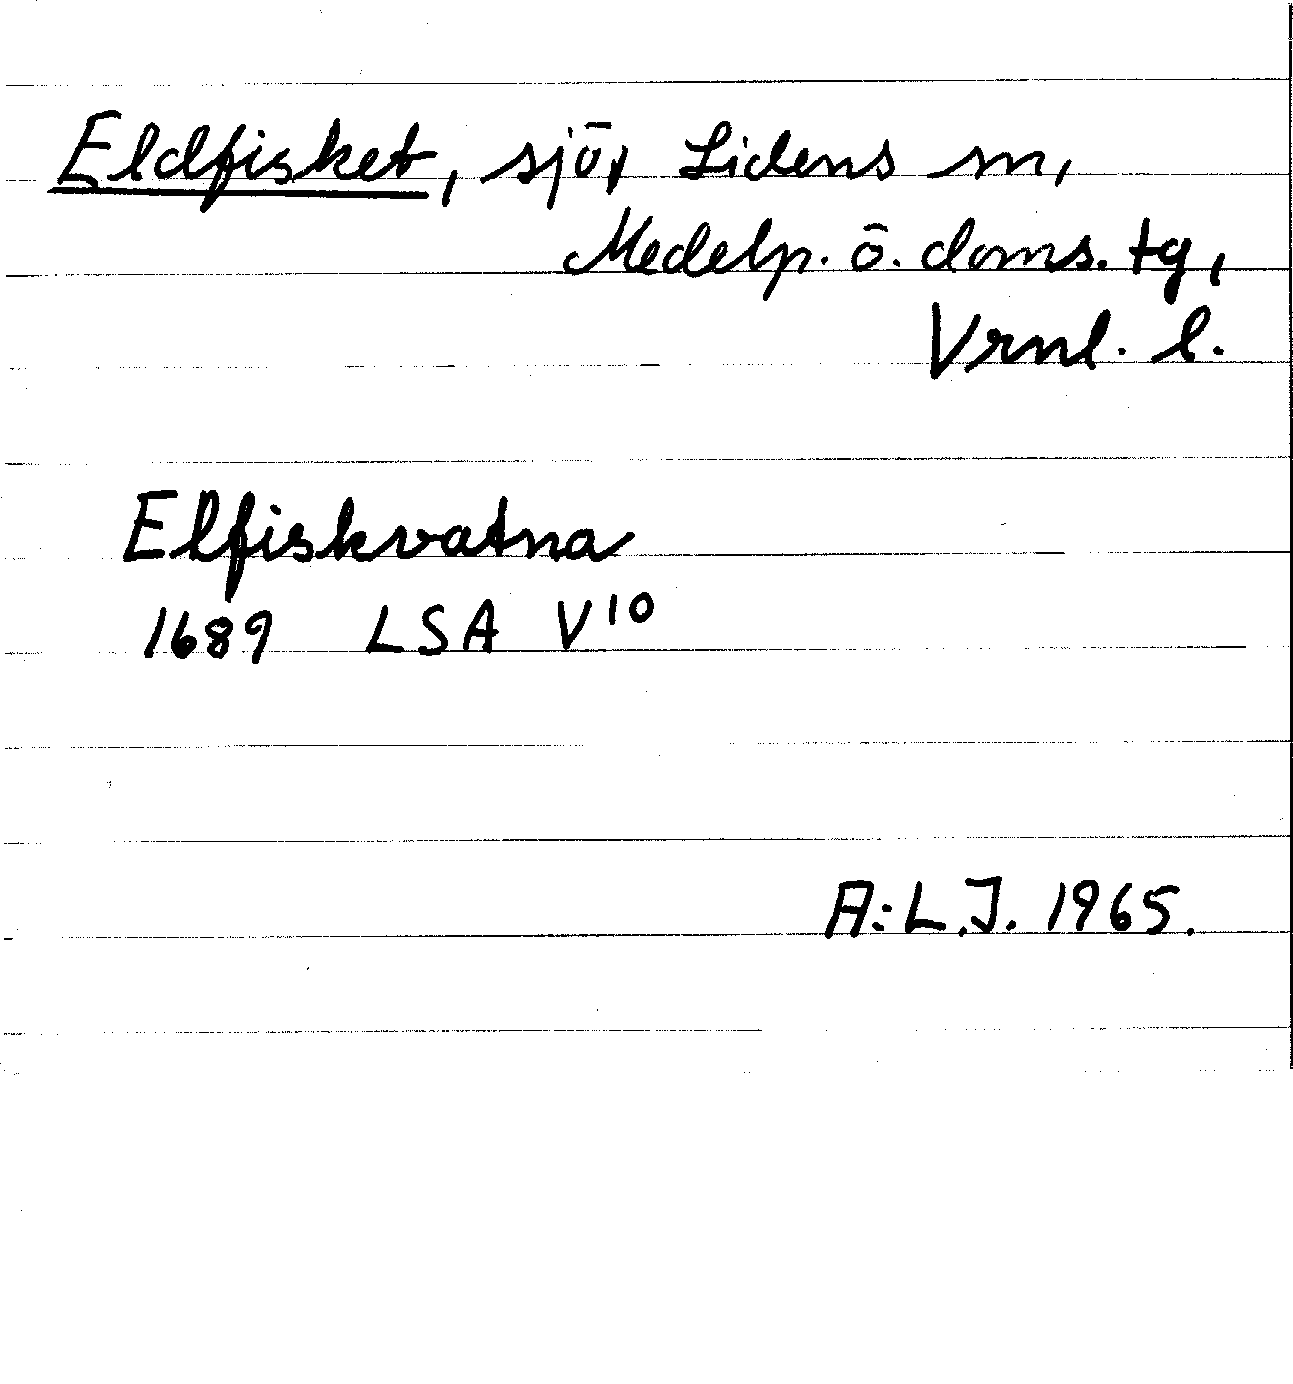 Eldfisket, sjö, Lidens sn,
Medelp. ö. doms. tg,
Vrnl. l.
Elfiskvatna
1689 LSA V¹⁰
A:L.J. 1965.